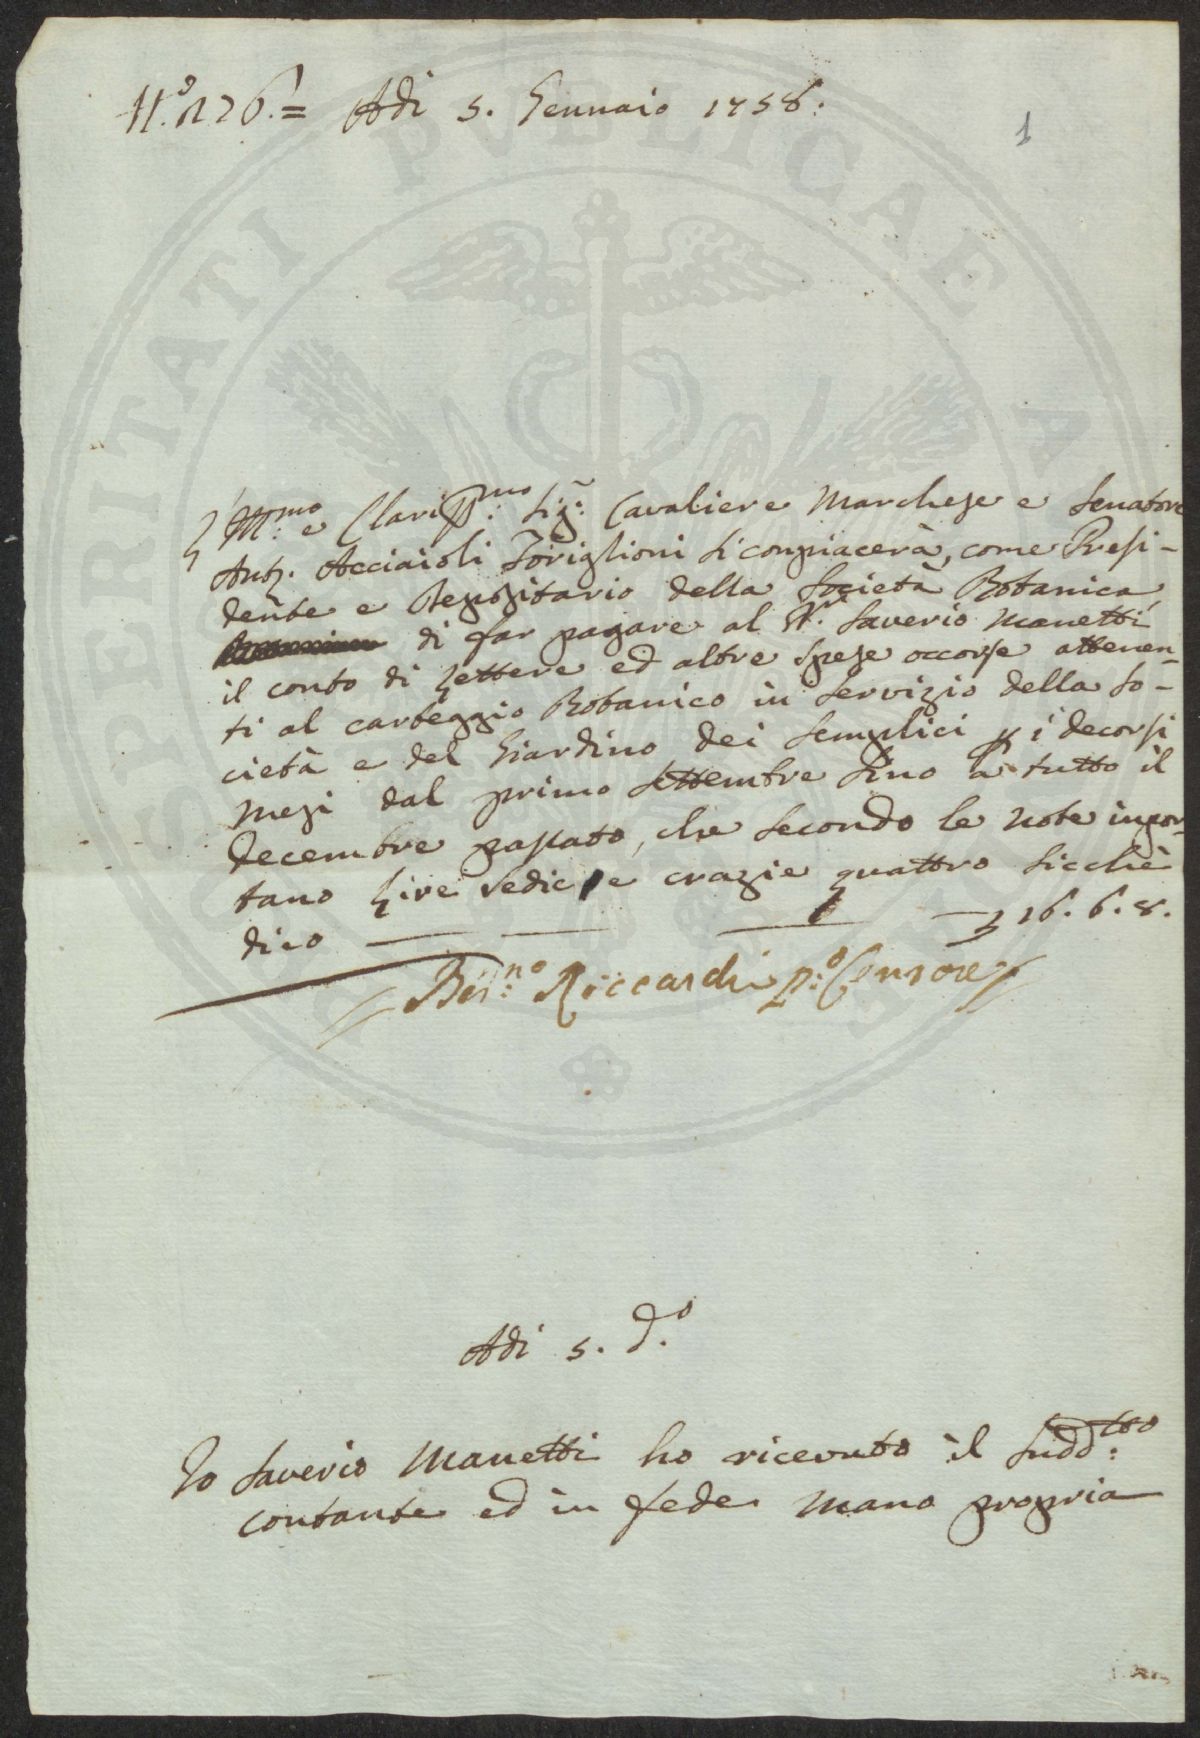 N.º 126. = Adì 5. Gennaio 1758.
1
L'Ill.mo e Clariss.mo Sig.r Cavaliere Marchese e Senatore
Ant. Acciaioli Toriglioni si compiacerà, come Presi-
dente e Depositario della Società Botanica
di far pagare al Saverio Manetti
il conto di Lettere ed altre spese occorse attenen-
ti al carteggio Botanico in servizio della So-
cietà e del Giardino dei Semplici p i decorsi
mesi dal primo Settembre sino a tutto il
Decembre passato, che secondo le note impor-
tano Lire sedici e crazie quattro sicchè
dico — — — £ 16. 6. 8.
Ber.no Riccardi p.º Censore
Adì 5. d.º
Io Saverio Manetti ho ricevuto il sudd.tto
contante ed in fede mano propria
PROSPERITATI PUBLICAE A